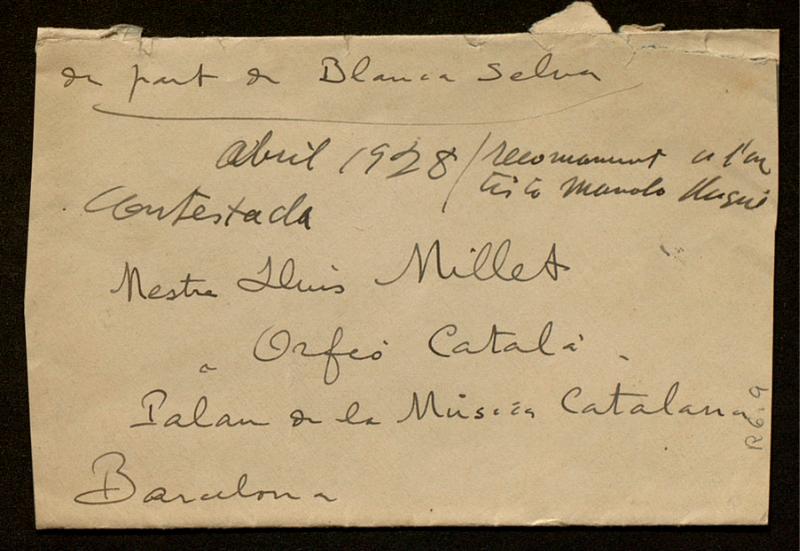 de part de Blanca Selva
abril 1928 / recomanant a l'ar
tista Manolo Hugué
Contestada
Mestre Lluis Millet
"Orfeó Català"
Palau de la Música Catalana
Barcelona
R6.9